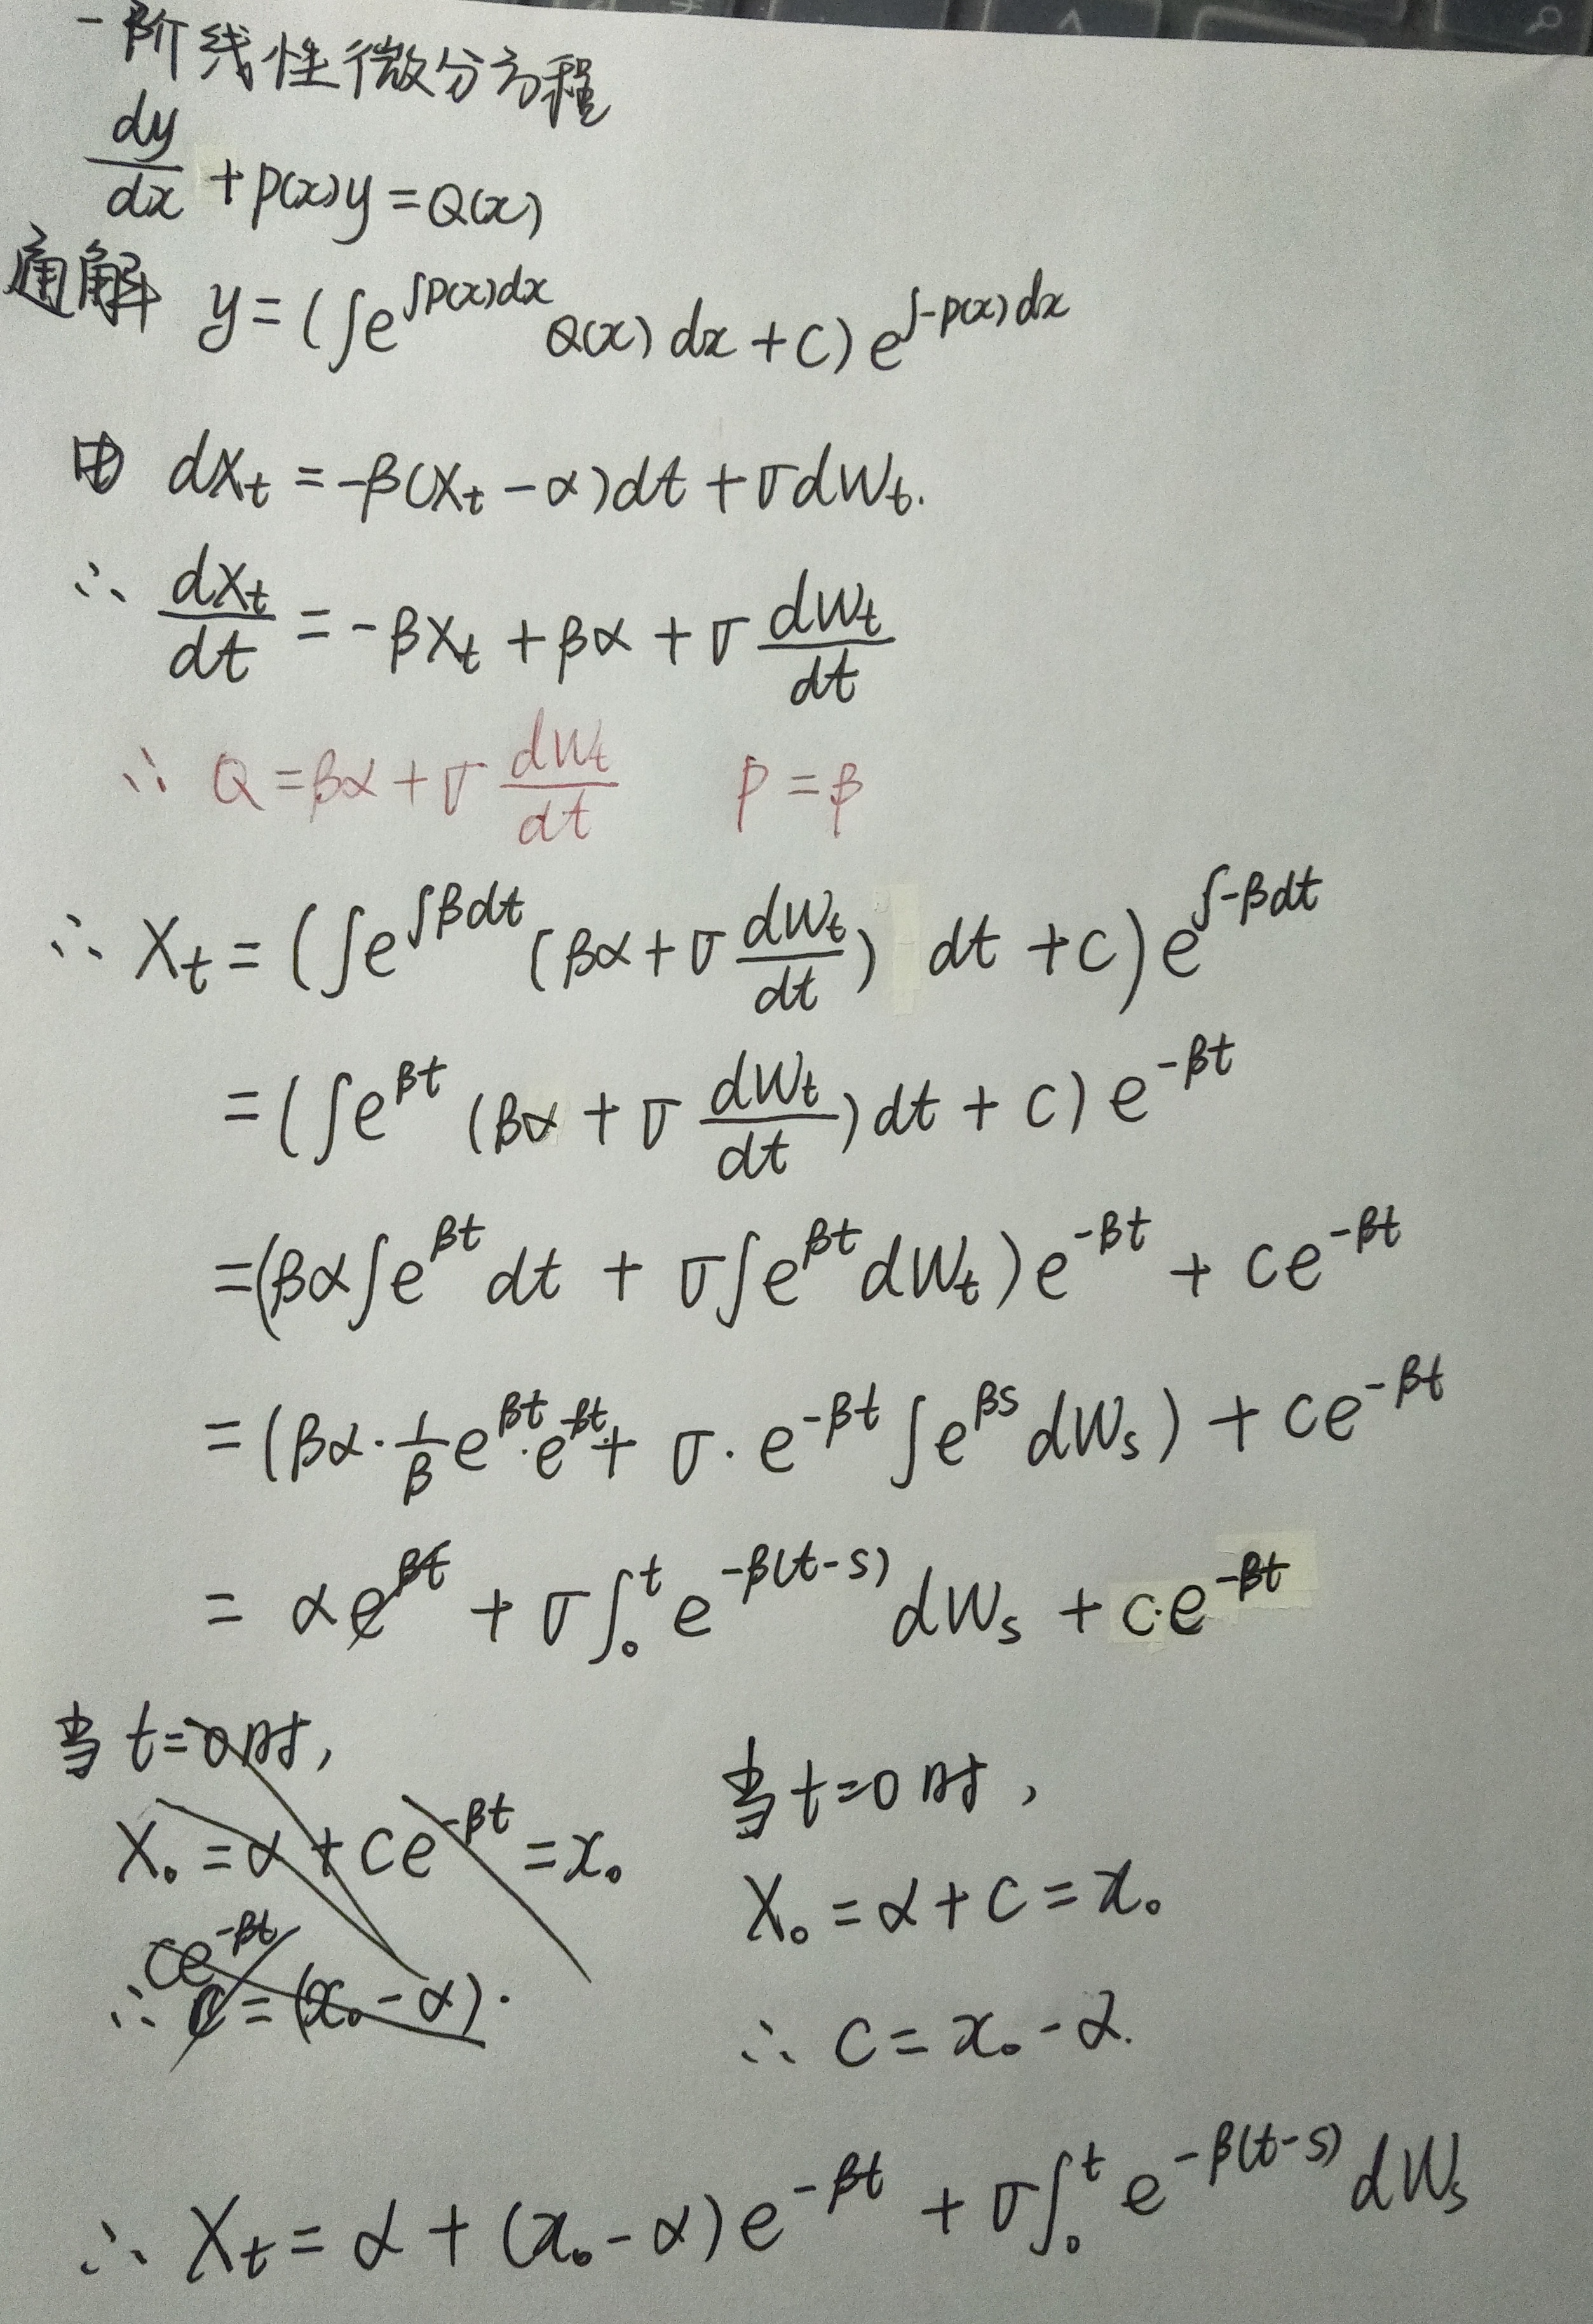 一阶线性微分方程
dy/dx + p(x)y = Q(x)
通解 y = (∫e^{∫p(x)dx} Q(x) dx + C) e^{∫-p(x)dx}
由 dX_t = -β(X_t - α)dt + σdW_t.
∴ dX_t/dt = -βX_t + βα + σ dW_t/dt
∴ Q = βα + σ dW_t/dt p = β
∴ X_t = (∫e^{∫βdt} (βα + σ dW_t/dt) dt + C) e^{∫-βdt}
= (∫e^{βt} (βα + σ dW_t/dt) dt + C) e^{-βt}
= (βα∫e^{βt} dt + σ∫e^{βt} dW_t) e^{-βt} + Ce^{-βt}
= (βα · 1/β e^{βt} · e^{-βt} + σ · e^{-βt} ∫e^{βs} dW_s) + Ce^{-βt}
= αe^{βt} + σ∫_0^t e^{-β(t-s)} dW_s + C·e^{-βt}
当 t=0时,
X_0 = α + Ce^{-βt} = x_0
Ce^{-βt}
∴ C = (x_0 - α).
当 t=0时,
X_0 = α + C = x_0
∴ C = x_0 - α.
∴ X_t = α + (x_0 - α)e^{-βt} + σ∫_0^t e^{-β(t-s)} dW_s